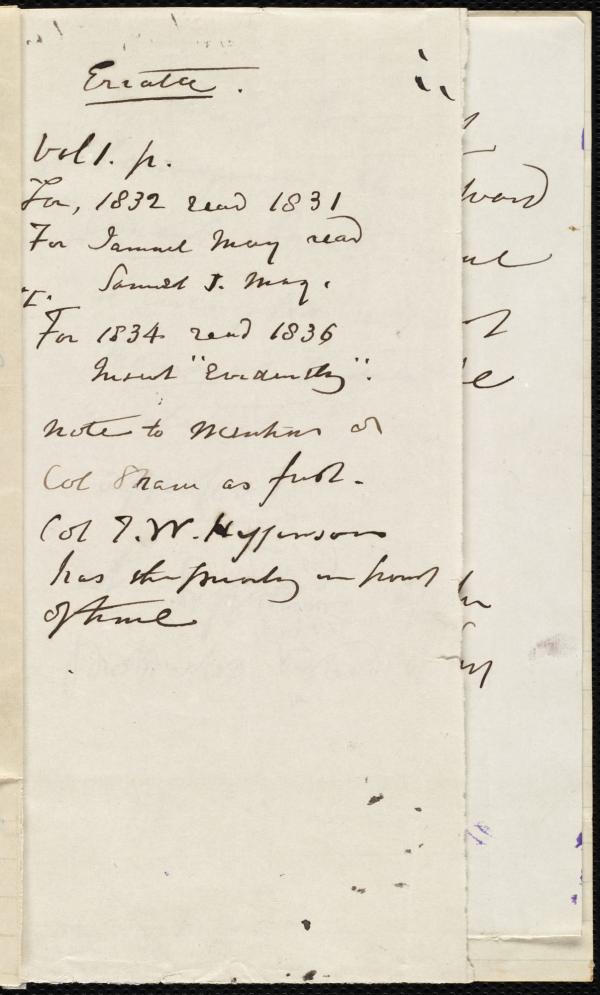 Errata.
Vol 1. p.
For, 1832 read 1831
For Samuel May read
Samuel J. May.
"I.
For 1834 read 1836
Insert "Evidently".
Note to mention of
Col Shaw as first.
Col T. W. Higginson
has the priority in point
of time